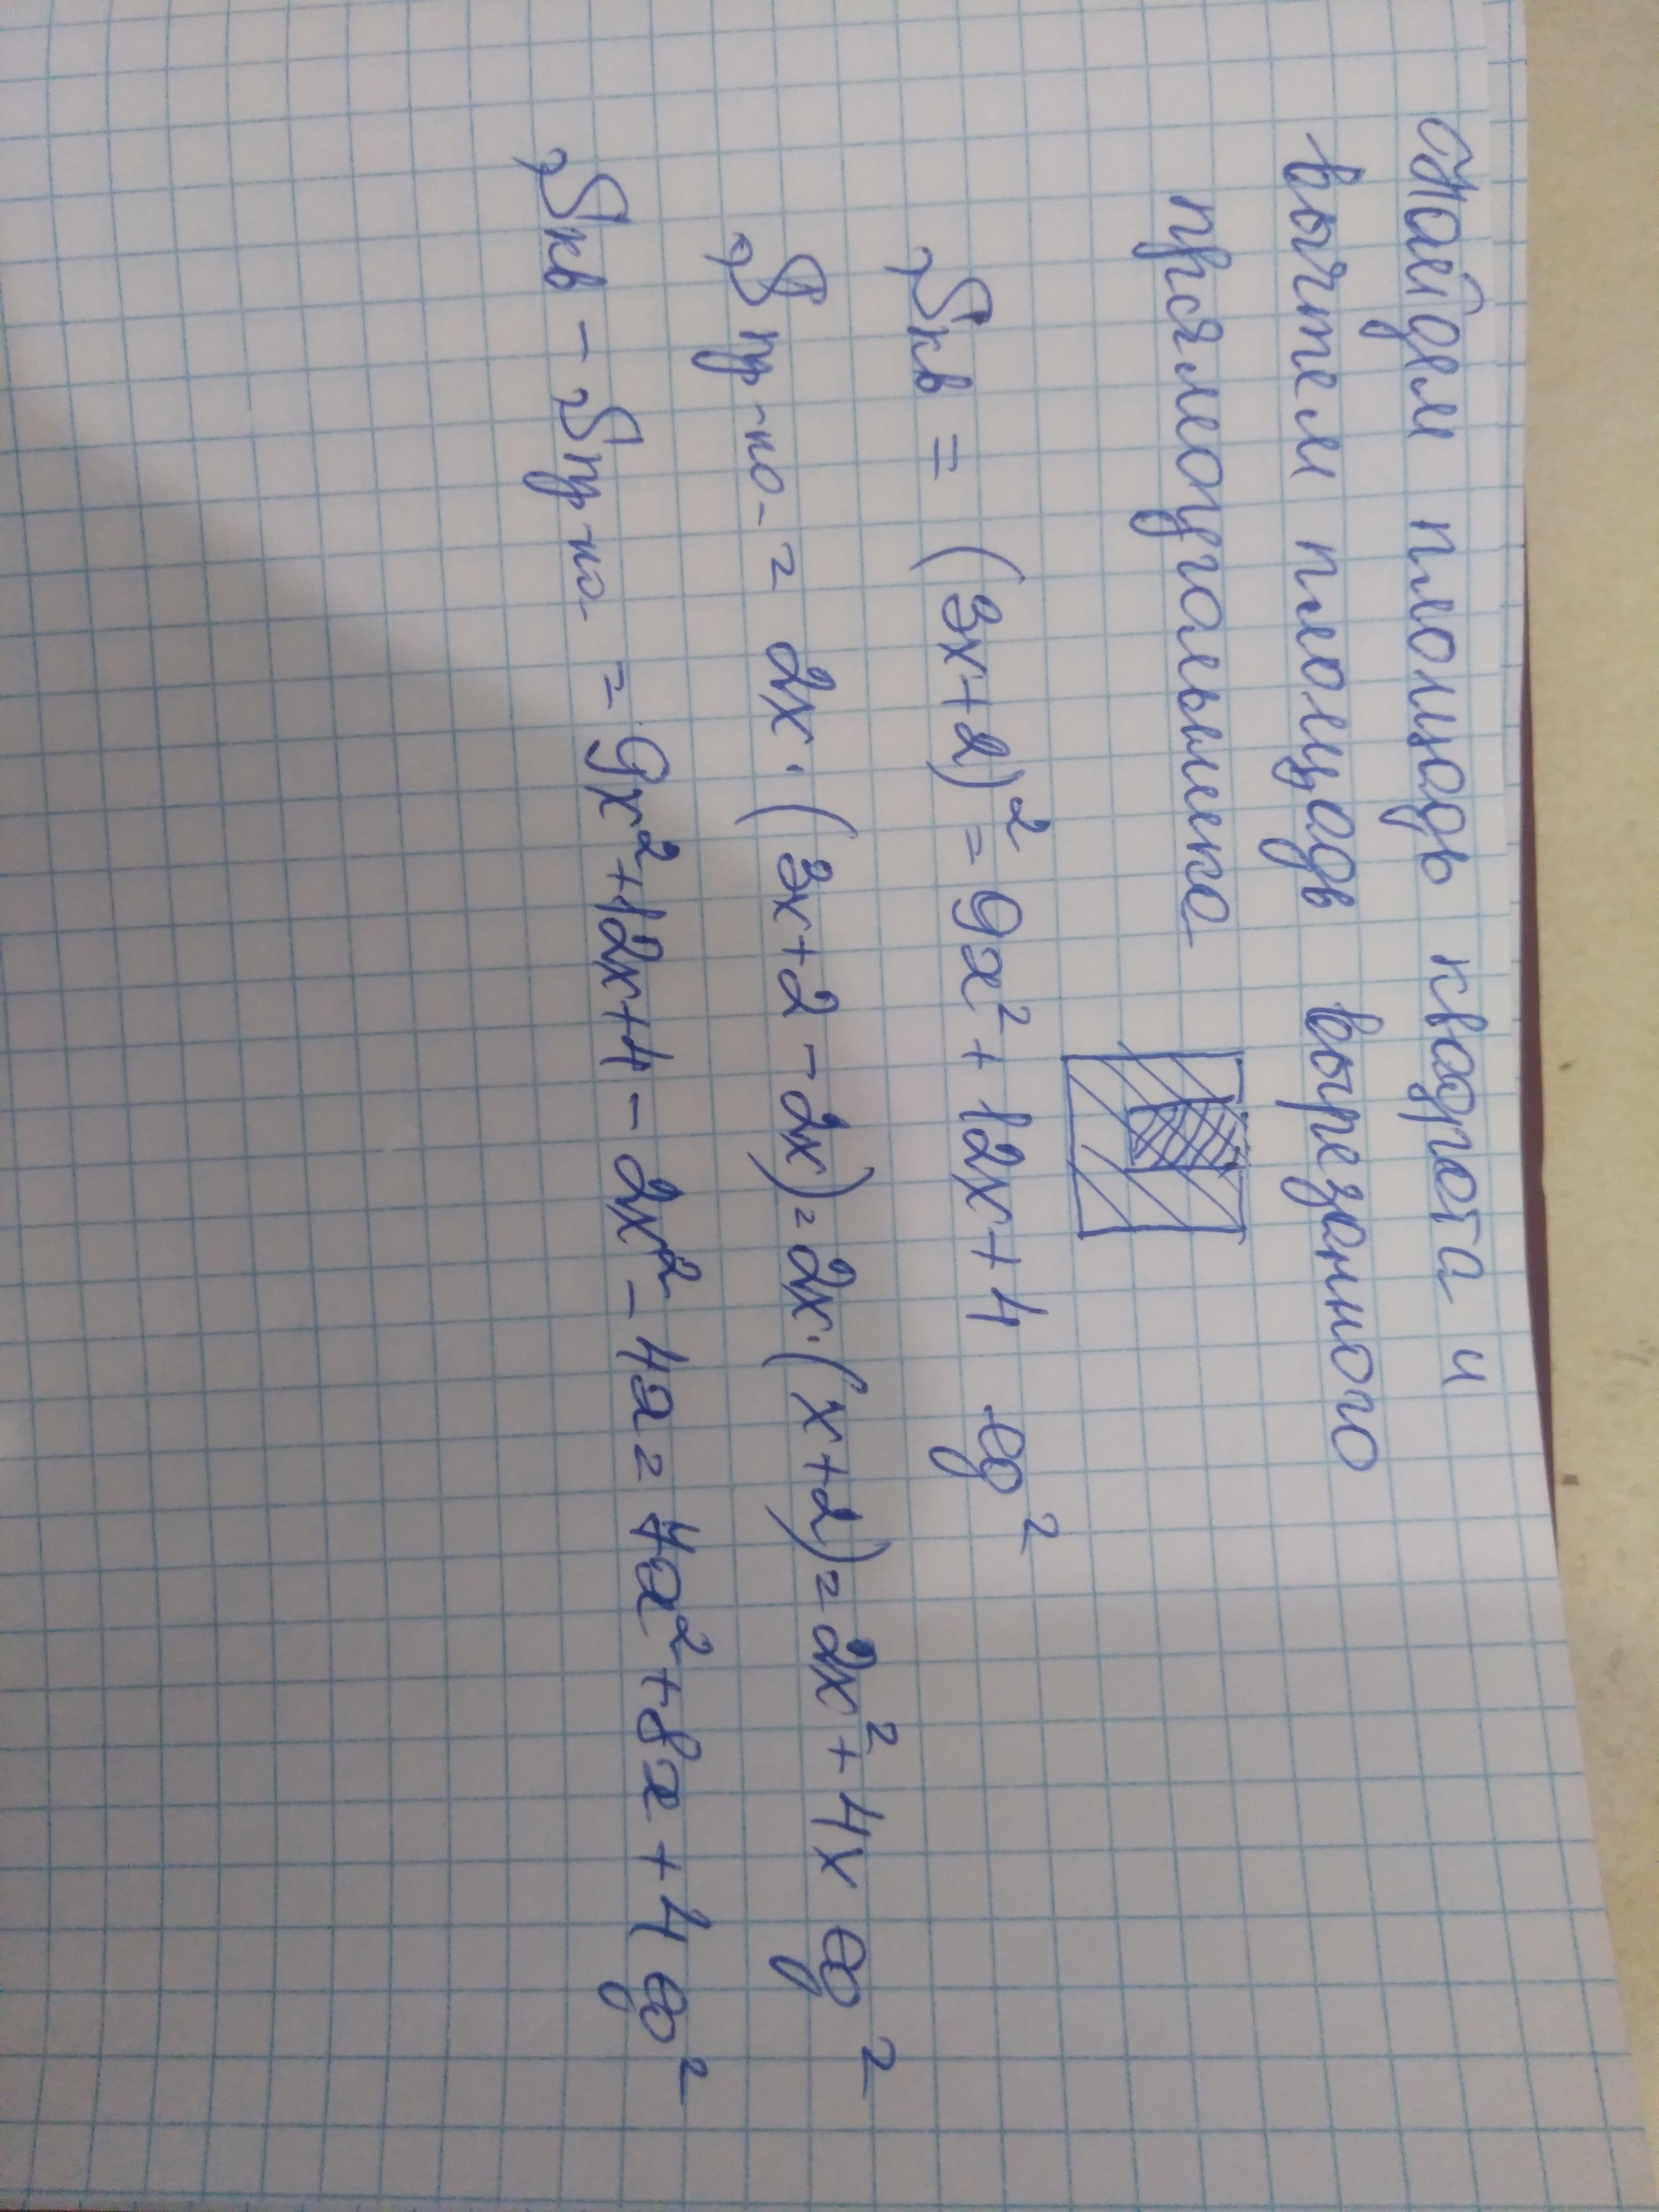 Найдем площадь квадрата и
вычтем площадь вырезанного
прямоугольника
Sкв = (3x+2)² = 9x² + 12x + 4 ед²
Sпр-ка = 2x · (3x+2 - 2x) = 2x · (x+2) = 2x² + 4x ед²
Sкв - Sпр-ка = 9x² + 12x + 4 - 2x² - 4x = 7x² + 8x + 4 ед²